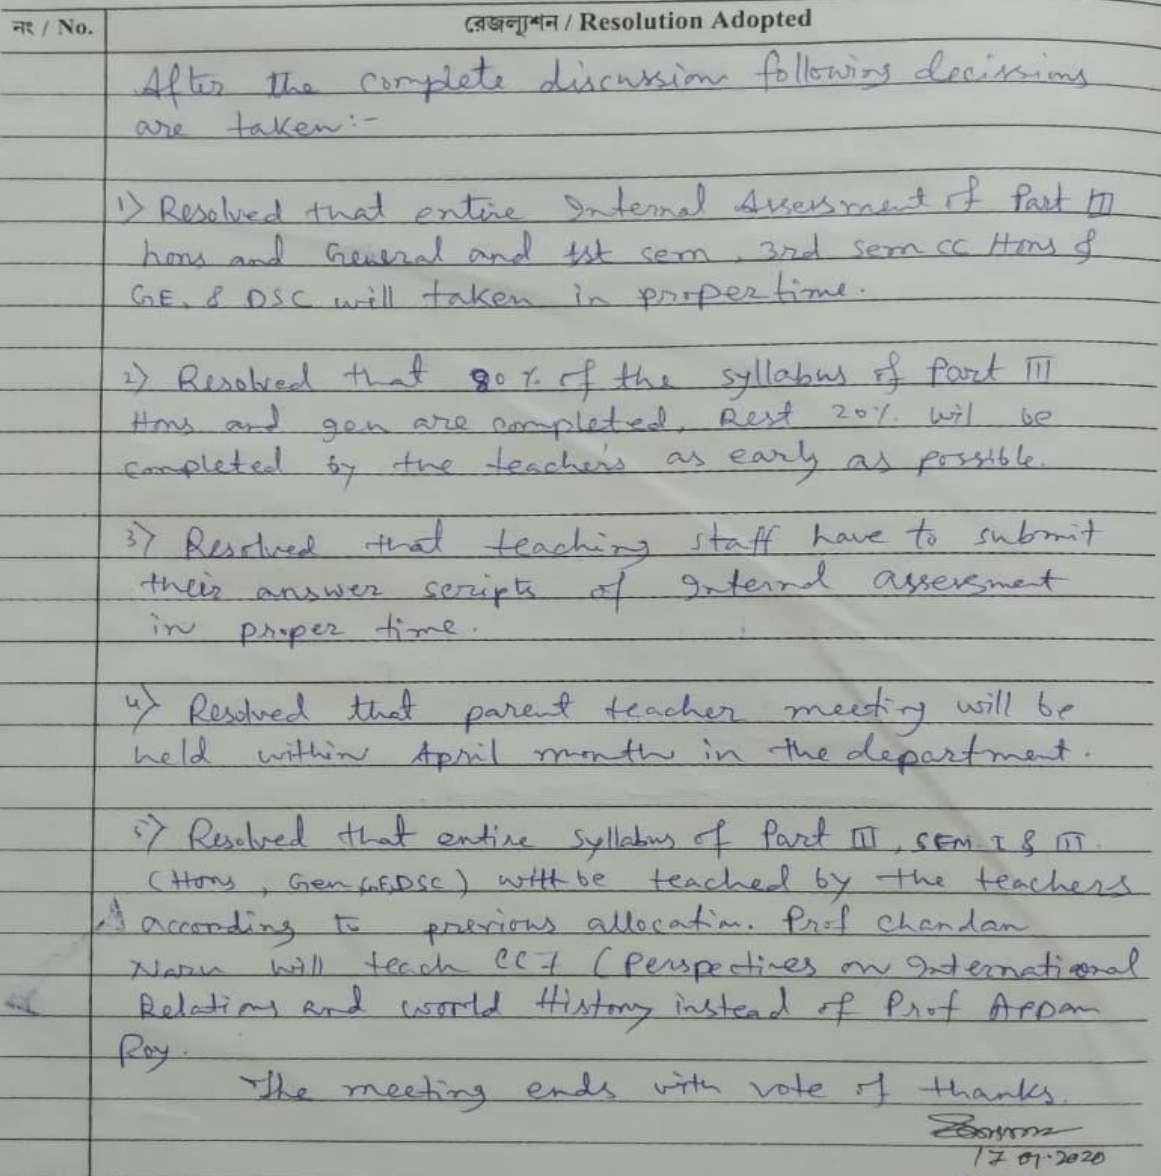 নং / No.
রেজল্যুশন / Resolution Adopted
After the complete discussion following decissions
are taken:-
1) Resolved that entire Internal Assessment of Part III
hons and General and 1st sem, 3rd sem CC Hons &
GE. & DSC will taken in proper time.
2) Resolved that 80% of the syllabus of Part III
Hons and gen are completed. Rest 20% will be
completed by the teachers as early as possible.
3) Resolved that teaching staff have to submit
their answer scripts of Internal assessment
in proper time.
4) Resolved that parent teacher meeting will be
held within April month in the department.
5) Resolved that entire syllabus of Part III, SEM-I & III
(Hons, Gen GE, DSC) will be teached by the teachers
according to previous allocation. Prof Chandan
will teach CC7 (Perspectives on International
Relations and World History instead of Prof
Roy.
The meeting ends with vote of thanks.
17.01.2020